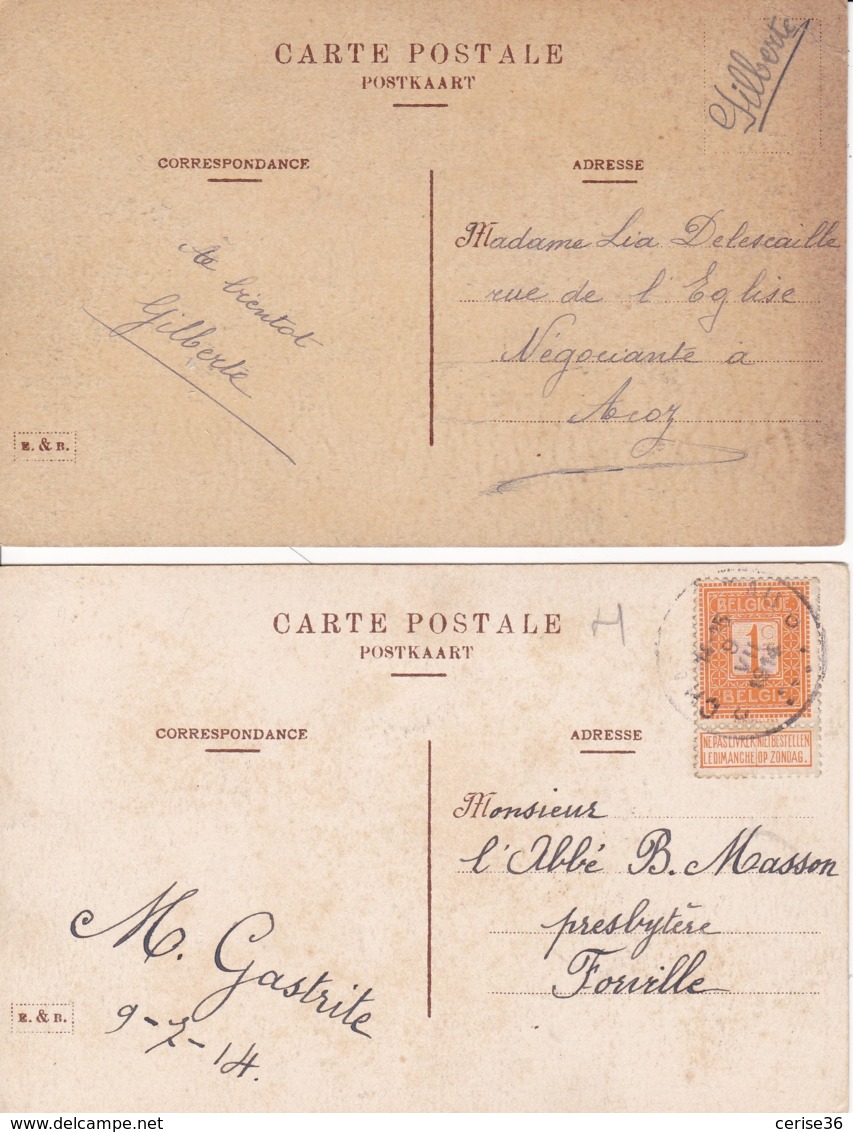 CARTE POSTALE
POSTKAART
Gilberte
CORRESPONDANCE
ADRESSE
A bientot
Gilberte
Madame Lia Delescaille
rue de l'Eglise
Négociante a
Acoz
E. & B.
CARTE POSTALE
POSTKAART
H
CORRESPONDANCE
ADRESSE
BELGIQUE
1c
BELGIË
NE PAS LIVRER NIET BESTELLEN
LE DIMANCHE OP ZONDAG.
VII
1914
Monsieur
l'Abbé B. Masson
presbytère
Forville
M. Gastrite
9-7-14.
E. & B.
cerise36